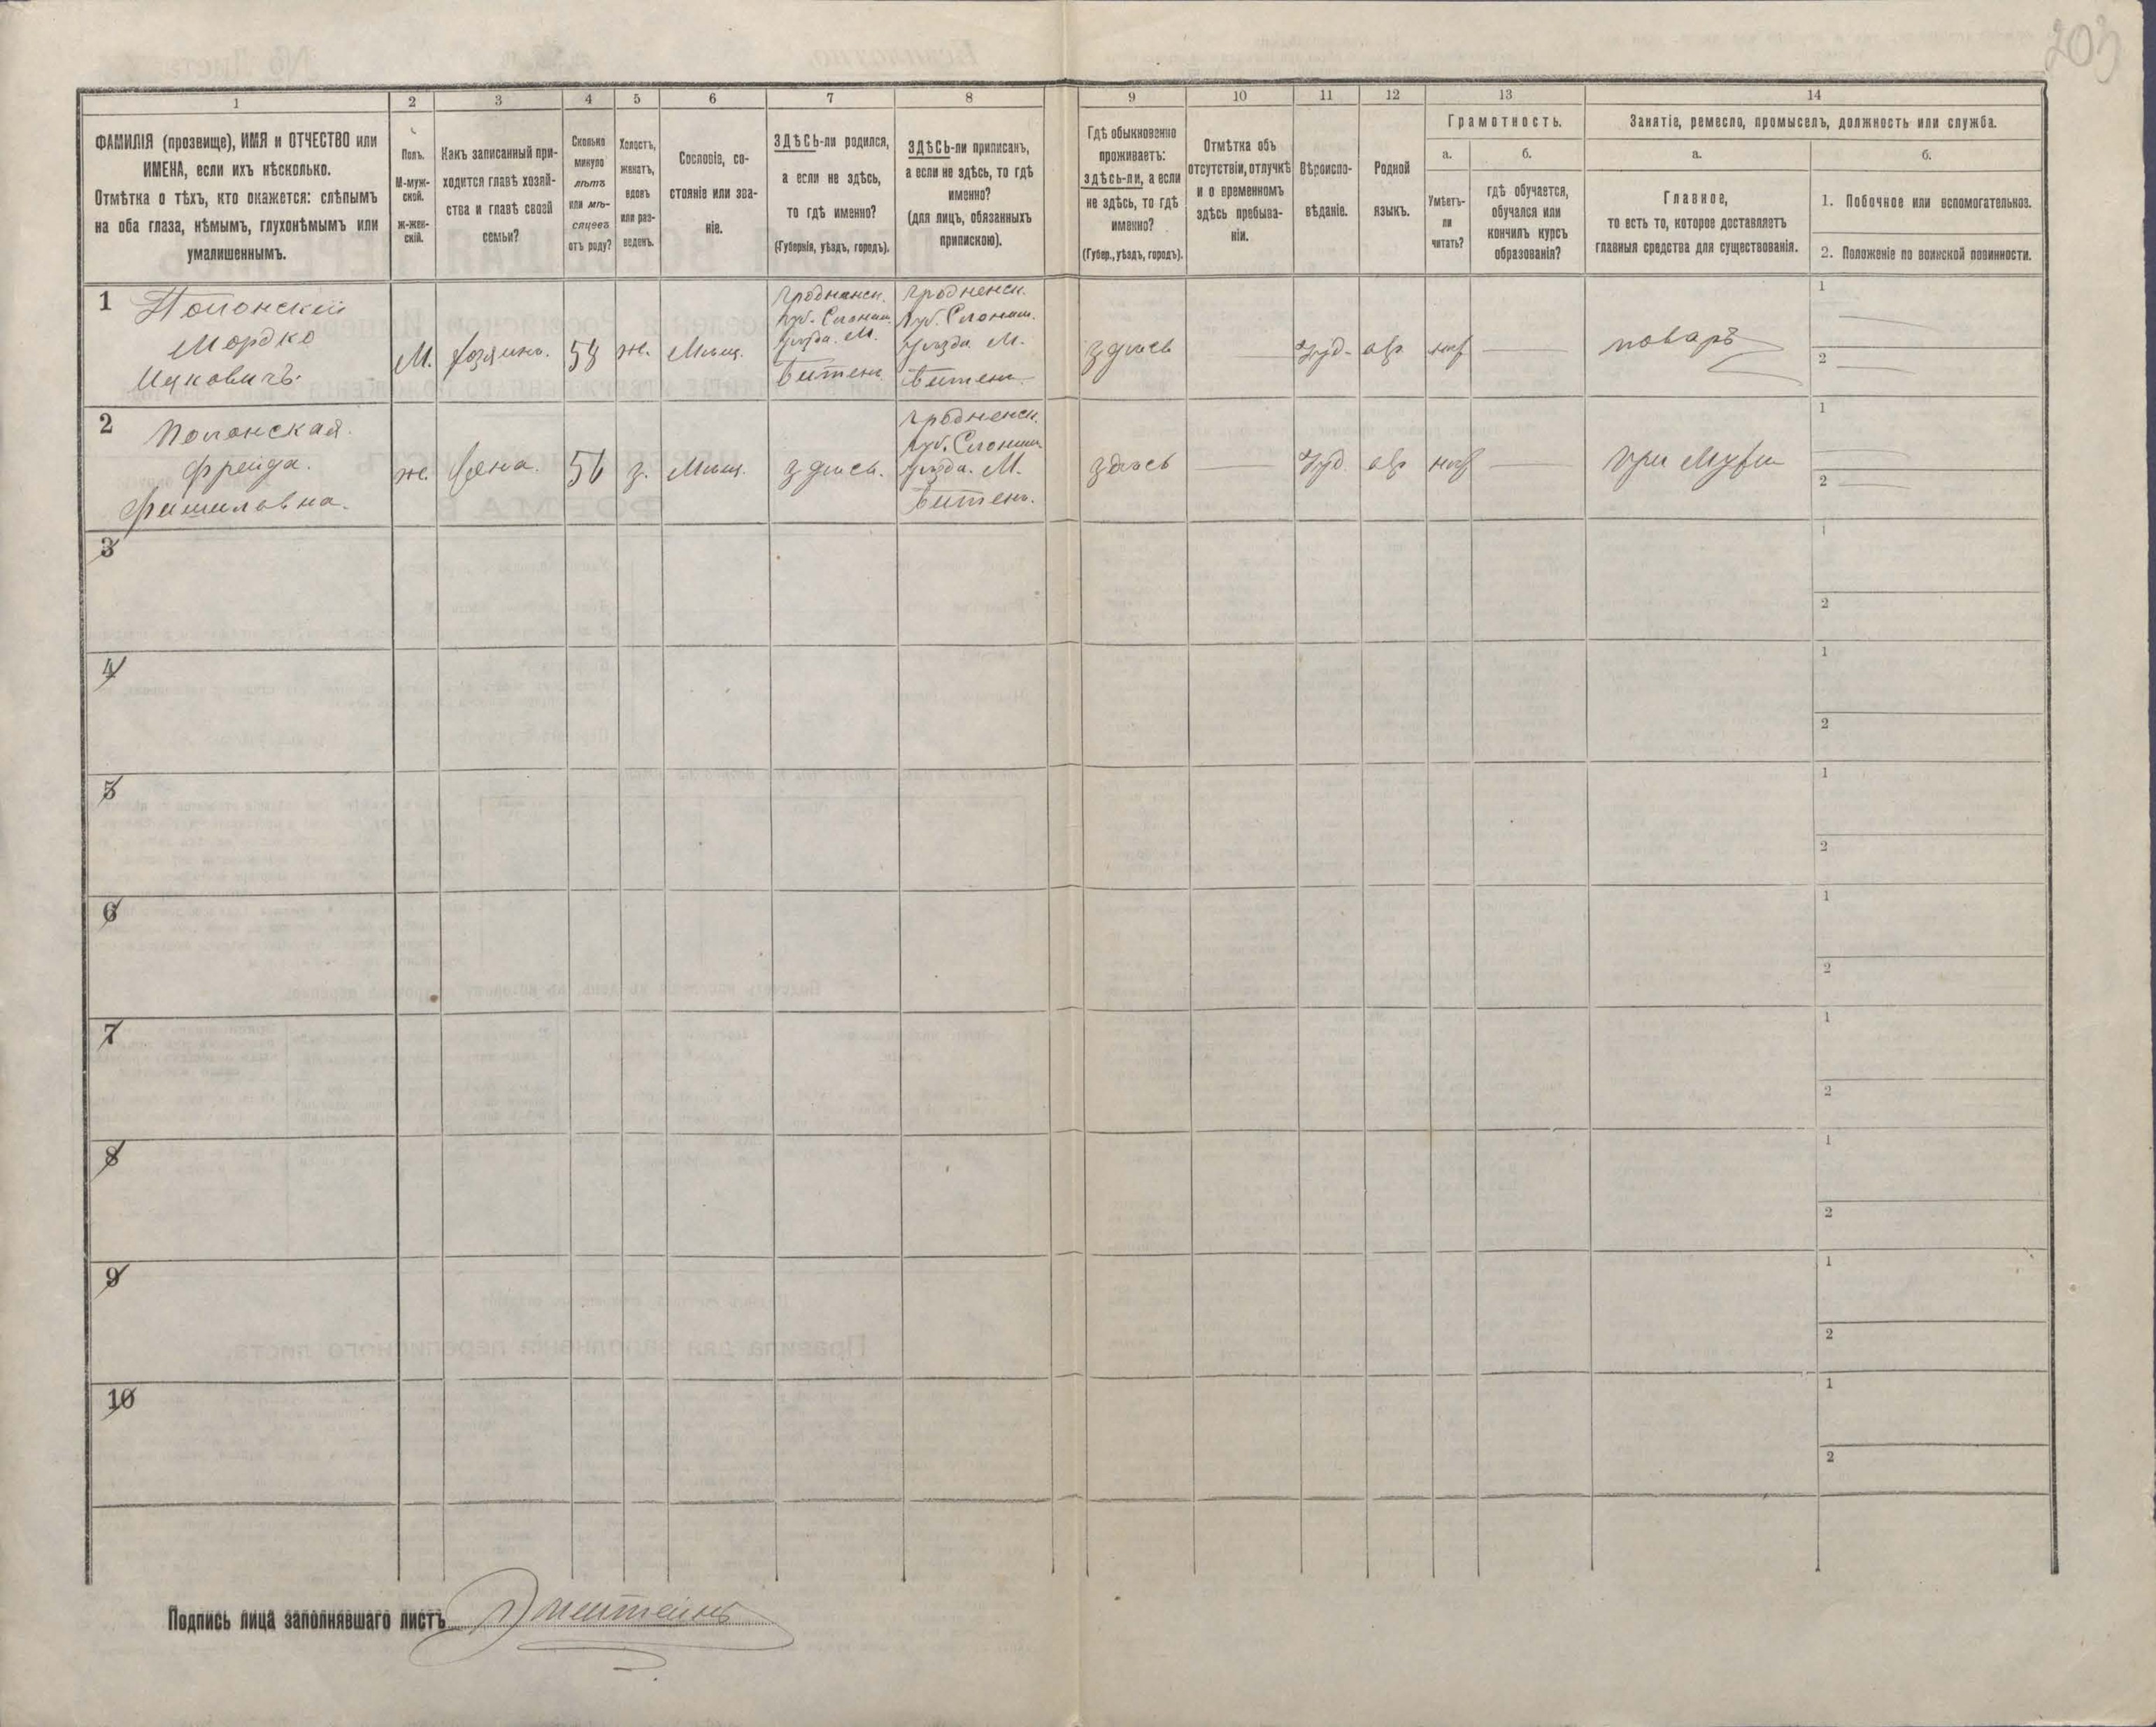 203
1
2
3
4
5
6
7
8
9
10
11
12
13
14
ФАМИЛІЯ (прозвище), ИМЯ и ОТЧЕСТВО или
ИМЕНА, если ихъ нѣсколько.
Отмѣтка о тѣхъ, кто окажется: слѣпымъ
на оба глаза, нѣмымъ, глухонѣмымъ или
умалишеннымъ.
Полъ.
М-муж-
ской.
ж-жен-
скій.
Какъ записанный при-
ходится главѣ хозяй-
ства и главѣ своей
семьи?
Сколько
минуло
лѣтъ
или мѣ-
сяцевъ
отъ роду?
Холостъ,
женатъ,
вдовъ
или раз-
веденъ.
Сословіе, со-
стояніе или зва-
ніе.
ЗДѢСЬ-ли родился,
а если не здѣсь,
то гдѣ именно?
(Губернія, уѣздъ, городъ).
ЗДѢСЬ-ли приписанъ,
а если не здѣсь, то гдѣ
именно?
(для лицъ, обязанныхъ
припискою).
Гдѣ обыкновенно
проживаетъ:
здѣсь-ли, а если
не здѣсь, то гдѣ
именно?
(Губер., уѣздъ, городъ).
Отмѣтка объ
отсутствіи, отлучкѣ
и о временномъ
здѣсь пребыва-
ніи.
Вѣроиспо-
вѣданіе.
Родной
языкъ.
Грамотность.
а.
Умѣетъ-
ли
читать?
б.
гдѣ обучается,
обучался или
кончилъ курсъ
образованія?
Занятіе, ремесло, промыселъ, должность или служба.
а.
Главное,
то есть то, которое доставляетъ
главныя средства для существованія.
б.
1. Побочное или вспомогательное.
2. Положеніе по воинской повинности.
1
Полонскій
Мордко
Ицковичъ
М.
хозяинъ.
58
ж.
Мѣщ.
Гродненск.
Губ. Слоним.
Уѣзда. М.
Битень
Гродненск.
Губ. Слоним.
Уѣзда М.
Битень
здѣсь
Іуд.
евр.
нѣт
поваръ
1
2
2
Полонская
Фрейда.
Фишиловна.
ж.
жена.
56
з.
Мѣщ.
здѣсь.
Гродненск.
Губ. Слоним.
Уѣзда. М.
Битень.
здѣсь
Іуд.
евр
нѣт
при мужѣ
1
2
3
1
2
4
1
2
5
1
2
6
1
2
7
1
2
8
1
2
9
1
2
10
1
2
Подпись лица заполнявшаго листъ